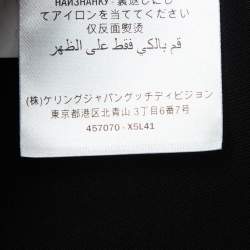 НАИЗНАНКУ・裏返しにし
てアイロンを当ててください
仅反面熨烫
قم بالكي فقط على الظهر
(株)ケリングジャパングッチディビジョン
東京都港区北青山 3丁目6番7号
457070 - X5L41